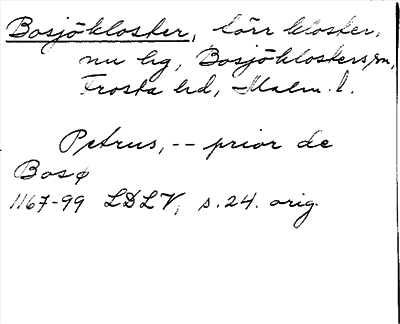 Bosjökloster, förr kloster,
nu lg, Bosjöklosters sn,
Frosta hd, Malm. l.
Petrus, -- prior de
Bosø
1167-99 LDLV, s. 24. orig.